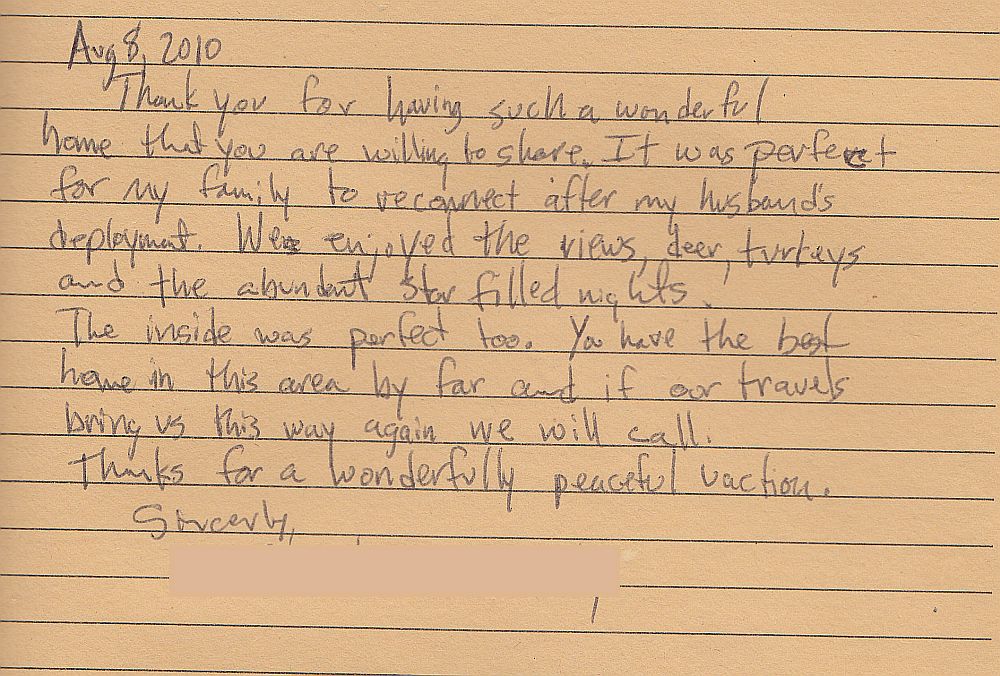 Aug 8, 2010
Thank you for having such a wonderful
home that you are willing to share. It was perfect
for my family to reconnect after my husband's
deployment. We enjoyed the views, deer, turkeys
and the abundant star filled nights.
The inside was perfect too. You have the best
home in this area by far and if our travels
bring us this way again we will call.
Thanks for a wonderfully peaceful vaction.
Sincerly,